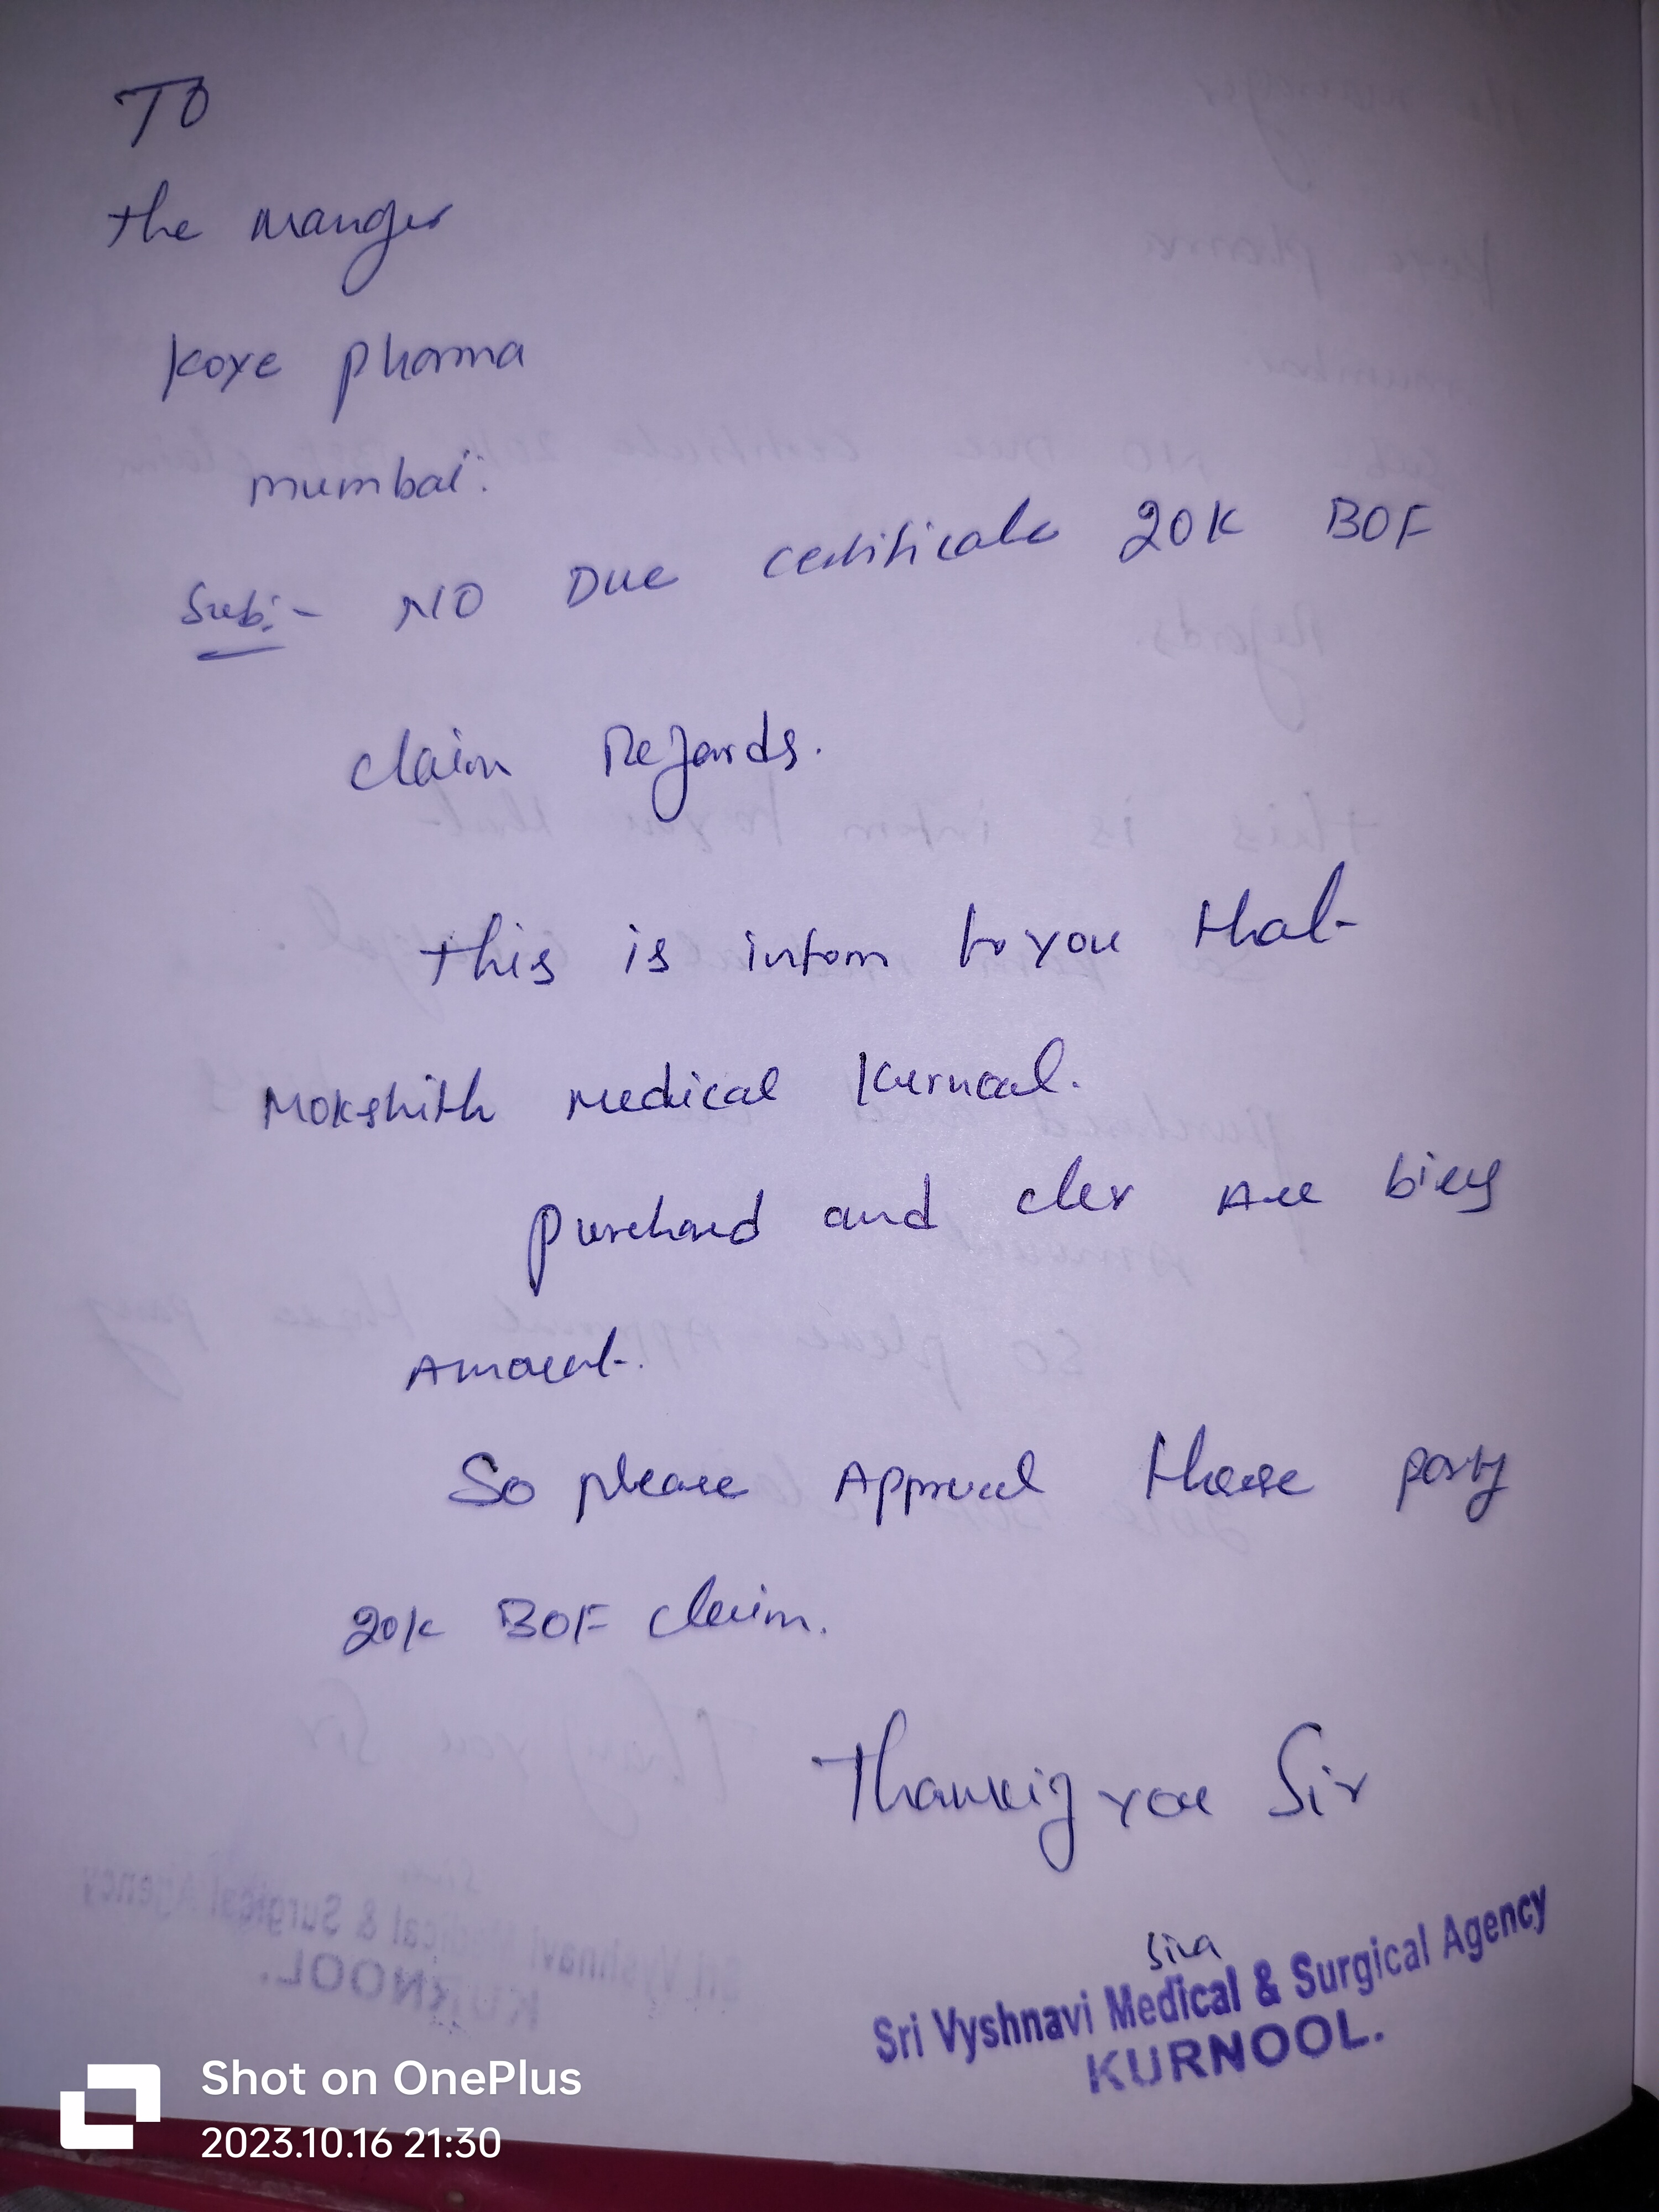 TO
the manger
Koye pharma
mumbai.
Sub:- NO Due certificate 20K BOF
claim Regards.
this is infom to you that
Mokshith medical Kurnool.
purchased and cler All bills
Amount.
So please Approval these party
20K BOF claim.
Thanking you Sir
Siva
Sri Vyshnavi Medical & Surgical Agency
KURNOOL.
Shot on OnePlus
2023.10.16 21:30